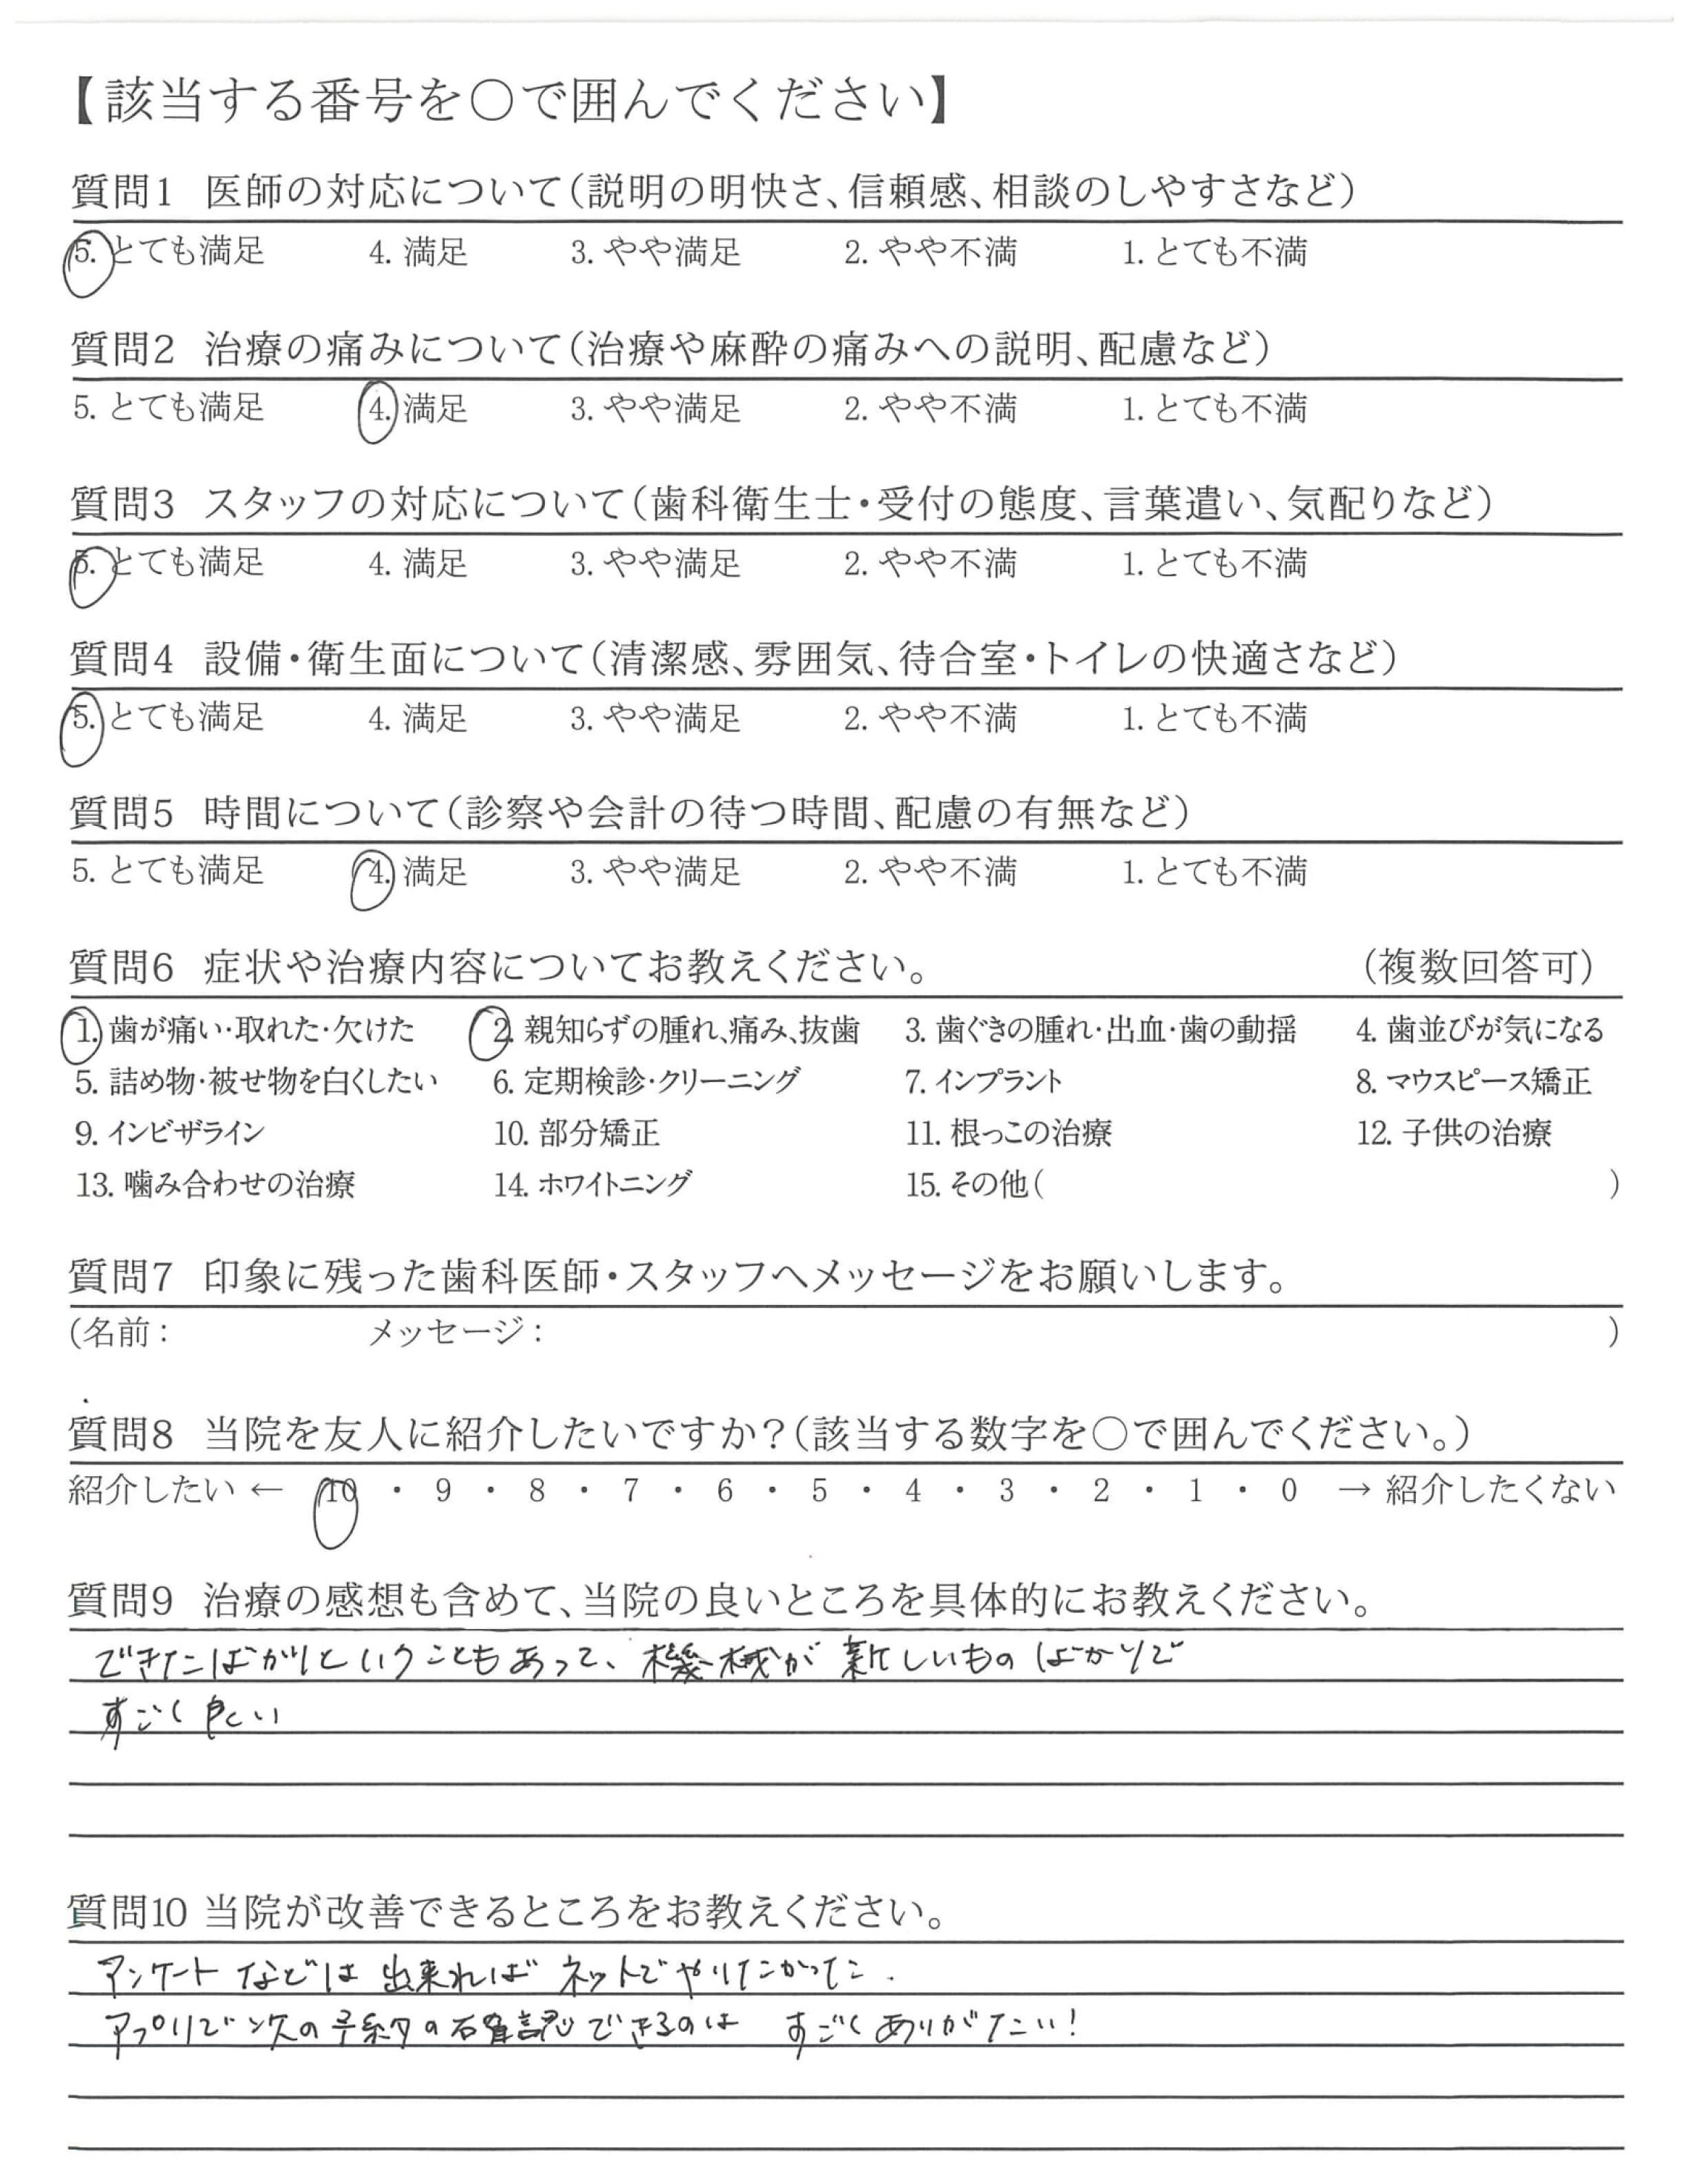 【該当する番号を〇で囲んでください】
質問1 医師の対応について(説明の明快さ、信頼感、相談のしやすさなど)
5. とても満足 4. 満足 3. やや満足 2. やや不満 1. とても不満
質問2 治療の痛みについて(治療や麻酔の痛みへの説明、配慮など)
5. とても満足 4. 満足 3. やや満足 2. やや不満 1. とても不満
質問3 スタッフの対応について(歯科衛生士・受付の態度、言葉遣い、気配りなど)
5. とても満足 4. 満足 3. やや満足 2. やや不満 1. とても不満
質問4 設備・衛生面について(清潔感、雰囲気、待合室・トイレの快適さなど)
5. とても満足 4. 満足 3. やや満足 2. やや不満 1. とても不満
質問5 時間について(診察や会計の待つ時間、配慮の有無など)
5. とても満足 4. 満足 3. やや満足 2. やや不満 1. とても不満
質問6 症状や治療内容についてお教えください。 (複数回答可)
1. 歯が痛い・取れた・欠けた 2. 親知らずの腫れ、痛み、抜歯 3. 歯ぐきの腫れ・出血・歯の動揺 4. 歯並びが気になる
5. 詰め物・被せ物を白くしたい 6. 定期検診・クリーニング 7. インプラント 8. マウスピース矯正
9. インビザライン 10. 部分矯正 11. 根っこの治療 12. 子供の治療
13. 噛み合わせの治療 14. ホワイトニング 15. その他( )
質問7 印象に残った歯科医師・スタッフへメッセージをお願いします。
(名前: メッセージ: )
質問8 当院を友人に紹介したいですか?(該当する数字を〇で囲んでください。)
紹介したい ← 10 ・ 9 ・ 8 ・ 7 ・ 6 ・ 5 ・ 4 ・ 3 ・ 2 ・ 1 ・ 0 → 紹介したくない
質問9 治療の感想も含めて、当院の良いところを具体的にお教えください。
できたばかりということもあって、機械が新しいものばかりで
すごく良い
質問10 当院が改善できるところをお教えください。
アンケートなどは出来ればネットでやりたかった.
アプリで次の予約の確認できるのは すごくありがたい!